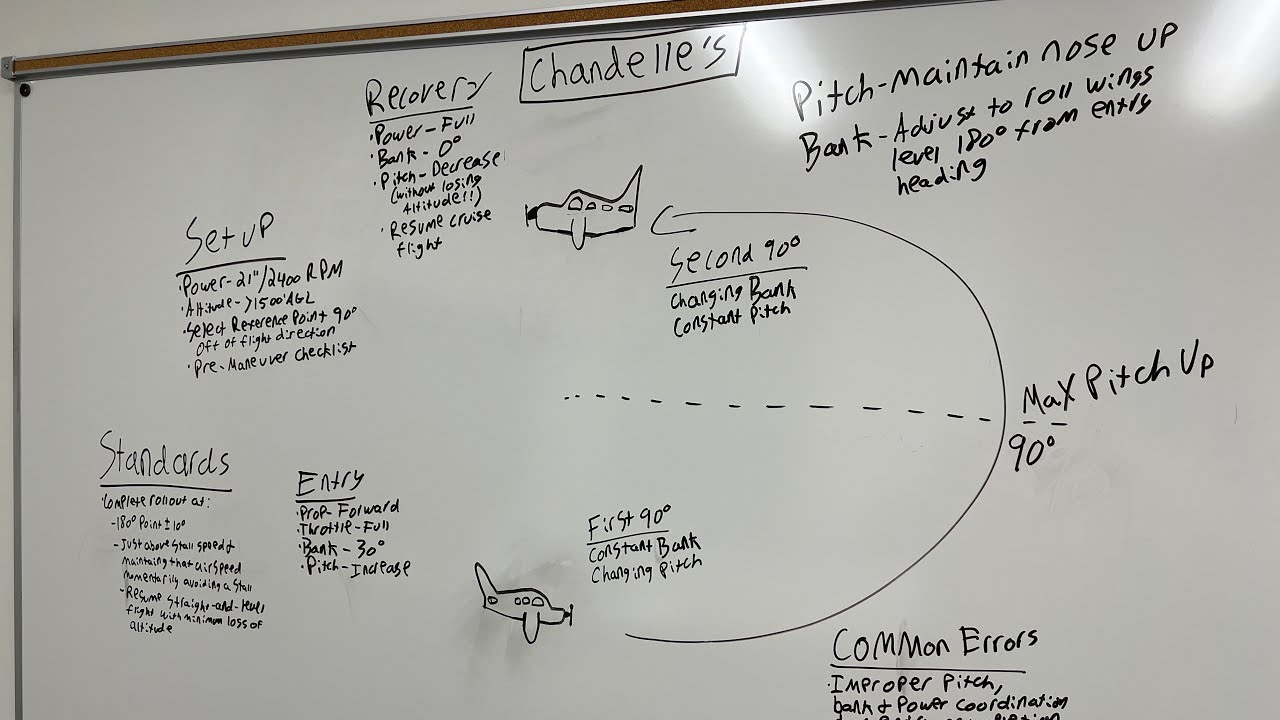 Chandelle's
Recovery
• Power - Full
• Bank - 0°
• Pitch - Decrease
(without losing
Altitude!!)
• Resume cruise
flight
Pitch - Maintain nose up
Bank - Adjust to roll wings
level 180° from entry
heading
Setup
• Power - 21"/2400 RPM
• Altitude - >1500' AGL
• Select Reference Point 90°
off of flight direction
• Pre-Maneuver checklist
Second 90°
Changing Bank
Constant Pitch
Max Pitch Up
90°
Standards
• Complete rollout at:
- 180° Point ± 10°
- Just above stall speed &
maintaining that airspeed
momentarily avoiding a stall
- Resume straight-and-level
flight with minimum loss of
altitude
Entry
• Prop - Forward
• Throttle - Full
• Bank - 30°
• Pitch - Increase
First 90°
Constant Bank
Changing Pitch
Common Errors
• Improper Pitch,
bank & Power coordination